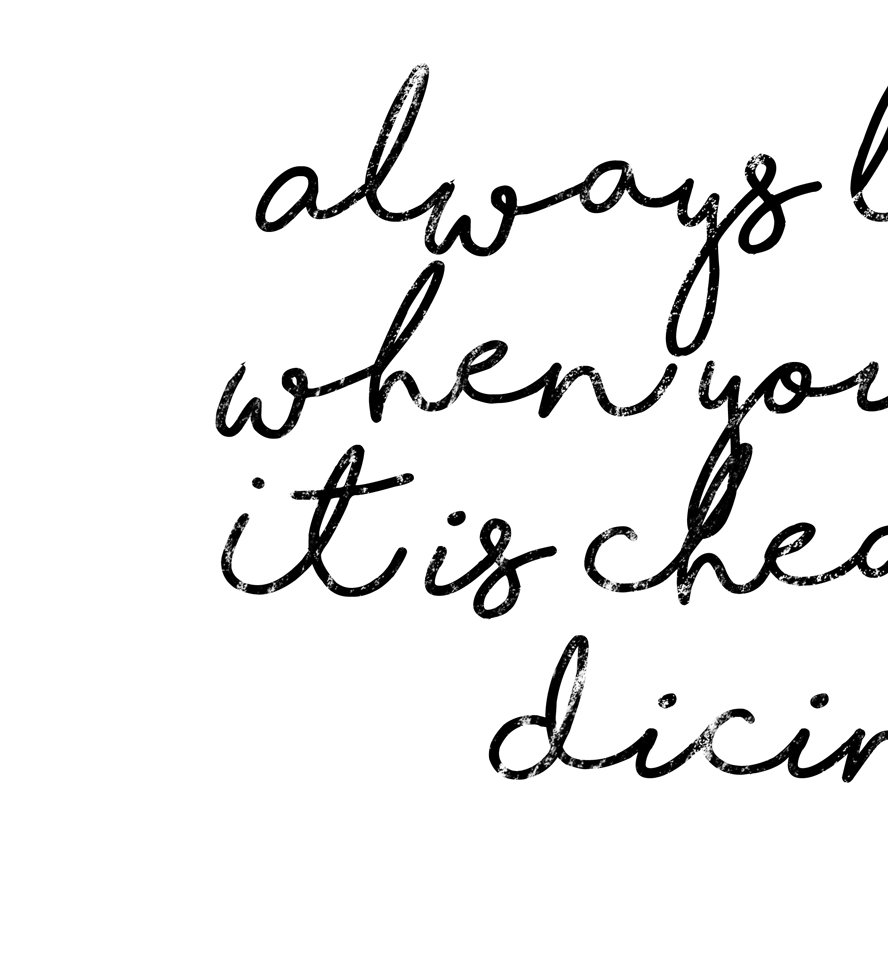 always l
when you
it is chea
dicin